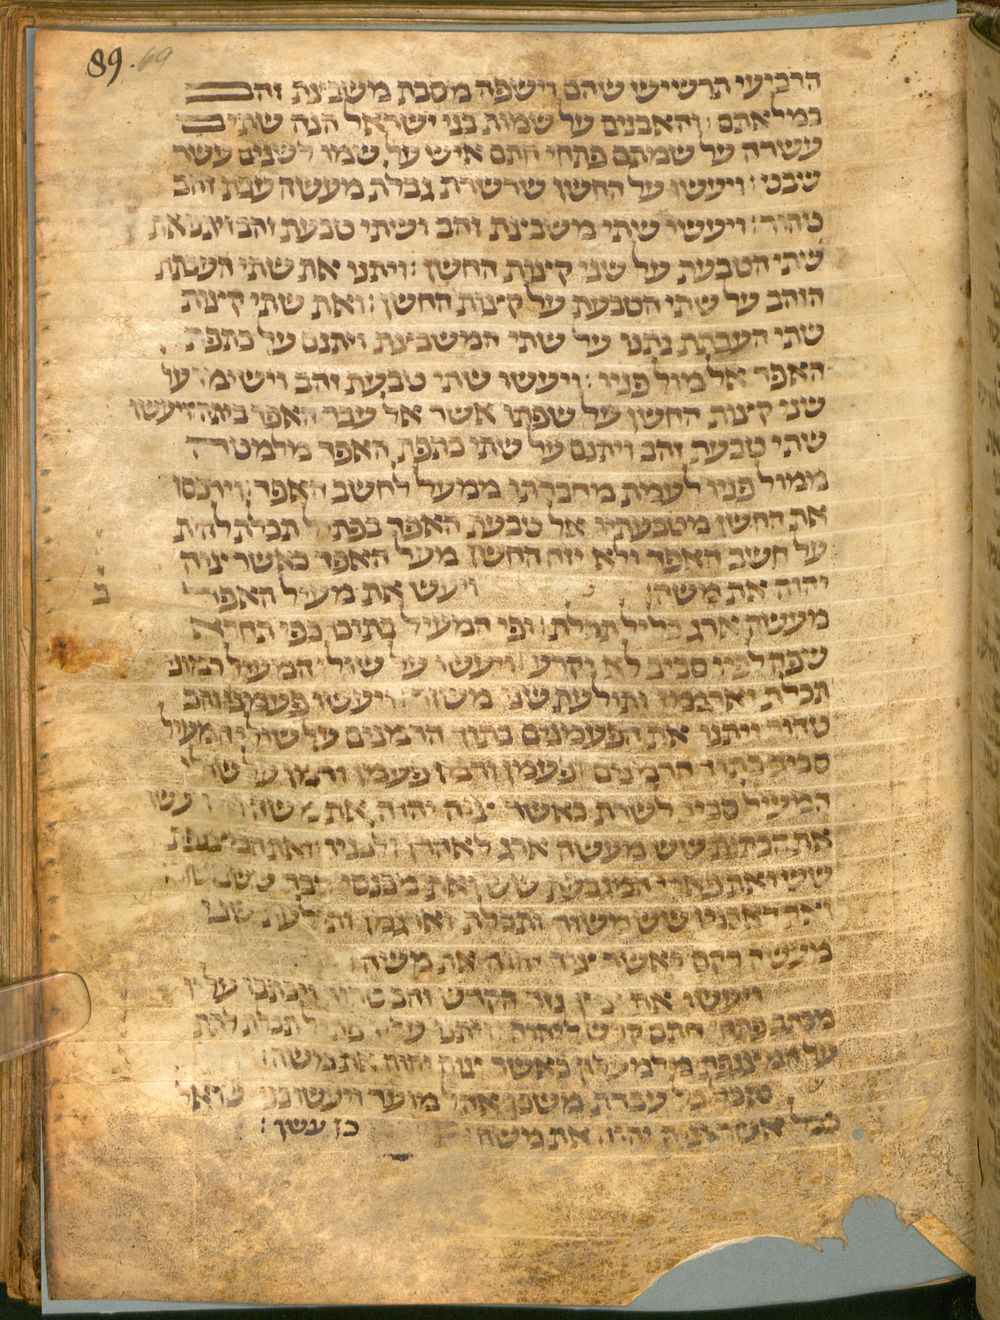 89. 69
הרביעי תרשיש שהם וישפה מסבת משבצת זהב
במלאתם : והאבנים על שמות בני ישראל הנה שתים
עשרה על שמתם פתחי חתם איש על שמו לשנים עשר
שבט : ויעשו על החשן שרשרת גבלת מעשה עבת זהב
טהור : ויעשו שתי משבצת זהב ושתי טבעת זהב ויתנו את
שתי הטבעת על שני קצות החשן : ויתנו את שתי העבתת
הזהב על שתי הטבעת על קצות החשן : ואת שתי קצות
שתי העבתת נתנו על שתי המשבצת ויתנם על כתפת
האפד אל מול פניו : ויעשו שתי טבעת זהב וישימו על
שני קצות החשן על שפתו אשר אל עבר האפד ביתה : ויעשו
שתי טבעת זהב ויתנם על שתי כתפת האפד מלמטה
ממול פניו לעמת מחברתו ממעל לחשב האפד : וירכסו
את החשן מטבעתיו אל טבעת האפד בפתיל תכלת להית
על חשב האפד ולא יזח החשן מעל האפד כאשר צוה
יהוה את משה : ויעש את מעיל האפד
ב
מעשה ארג כליל תכלת : ופי המעיל בתוכו כפי תחרא
שפה לפיו סביב לא יקרע : ויעשו על שולי המעיל רמוני
תכלת וארגמן ותולעת שני משזר : ויעשו פעמני זהב
טהור ויתנו את הפעמנים בתוך הרמנים על שולי המעיל
סביב בתוך הרמנים : פעמן ורמן פעמן ורמן על שולי
המעיל סביב לשרת כאשר צוה יהוה את משה : ויעשו
את הכתנת שש מעשה ארג לאהרן ולבניו : ואת המצנפת
שש ואת פארי המגבעת שש ואת מכנסי הבד שש
ואת האבנט שש משזר ותכלת וארגמן ותולעת שני
מעשה רקם כאשר צוה יהוה את משה :
ויעשו את ציץ נזר הקדש זהב טהור ויכתבו עליו
מכתב פתוחי חתם קדש ליהוה : ויתנו עליו פתיל תכלת לתת
על המצנפת מלמעלה כאשר צוה יהוה את משה :
ותכל כל עבדת משכן אהל מועד ויעשו בני ישראל
ככל אשר צוה יהוה את משה כן עשו :